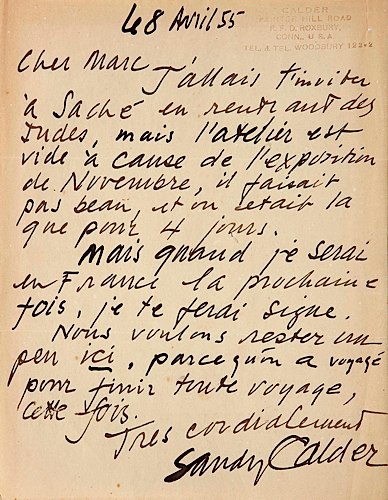 le 8 Avril 55
CALDER
PAINTER HILL ROAD
R. F. D. ROXBURY,
CONN., U.S.A.
TEL. & TEL. WOODBURY 122-2
Cher Marc
J'allais t'inviter
à Saché en rentrant des
Indes, mais l'atelier est
vide à cause de l'exposition
de Novembre, il faisait
pas beau, et on etait la
que pour 4 jours.
Mais quand je serai
en France la prochaine
fois, je te ferai signe.
Nous voulons rester un
peu ici, parcequ'on a voyagé
pour finir toute voyage,
cette fois.
Tres cordialement
Sandy Calder